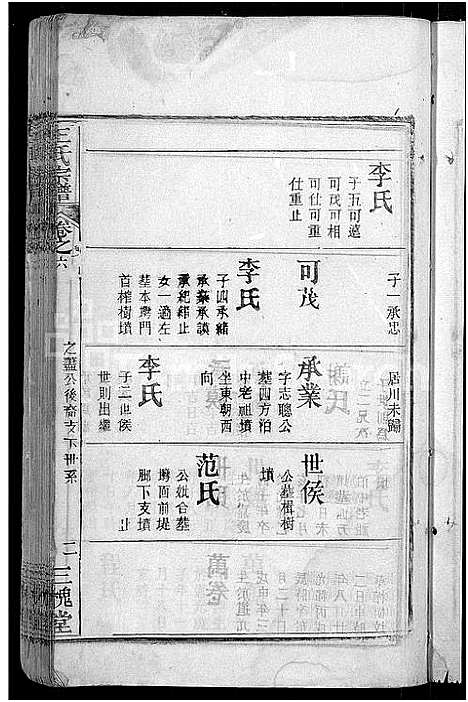 李氏
子五可遠
可茂可相
可仕可重
仕重止
子一承忠
可茂
李氏
子四承緒
承業承謨
承紀緒止
女一適左
墓本屬門
首榨樹墳
居川未歸
承業
字志聰公
墓四方泊
中老祖墳
坐東朝西
向
李氏
子二世侯
世則出繼
世侯
公墓楫樹
墳
范氏
公妣合墓
塆面前堤
腳下支墳
止
王氏宗譜
卷之六
之藎公後裔支下世系
二
三槐堂